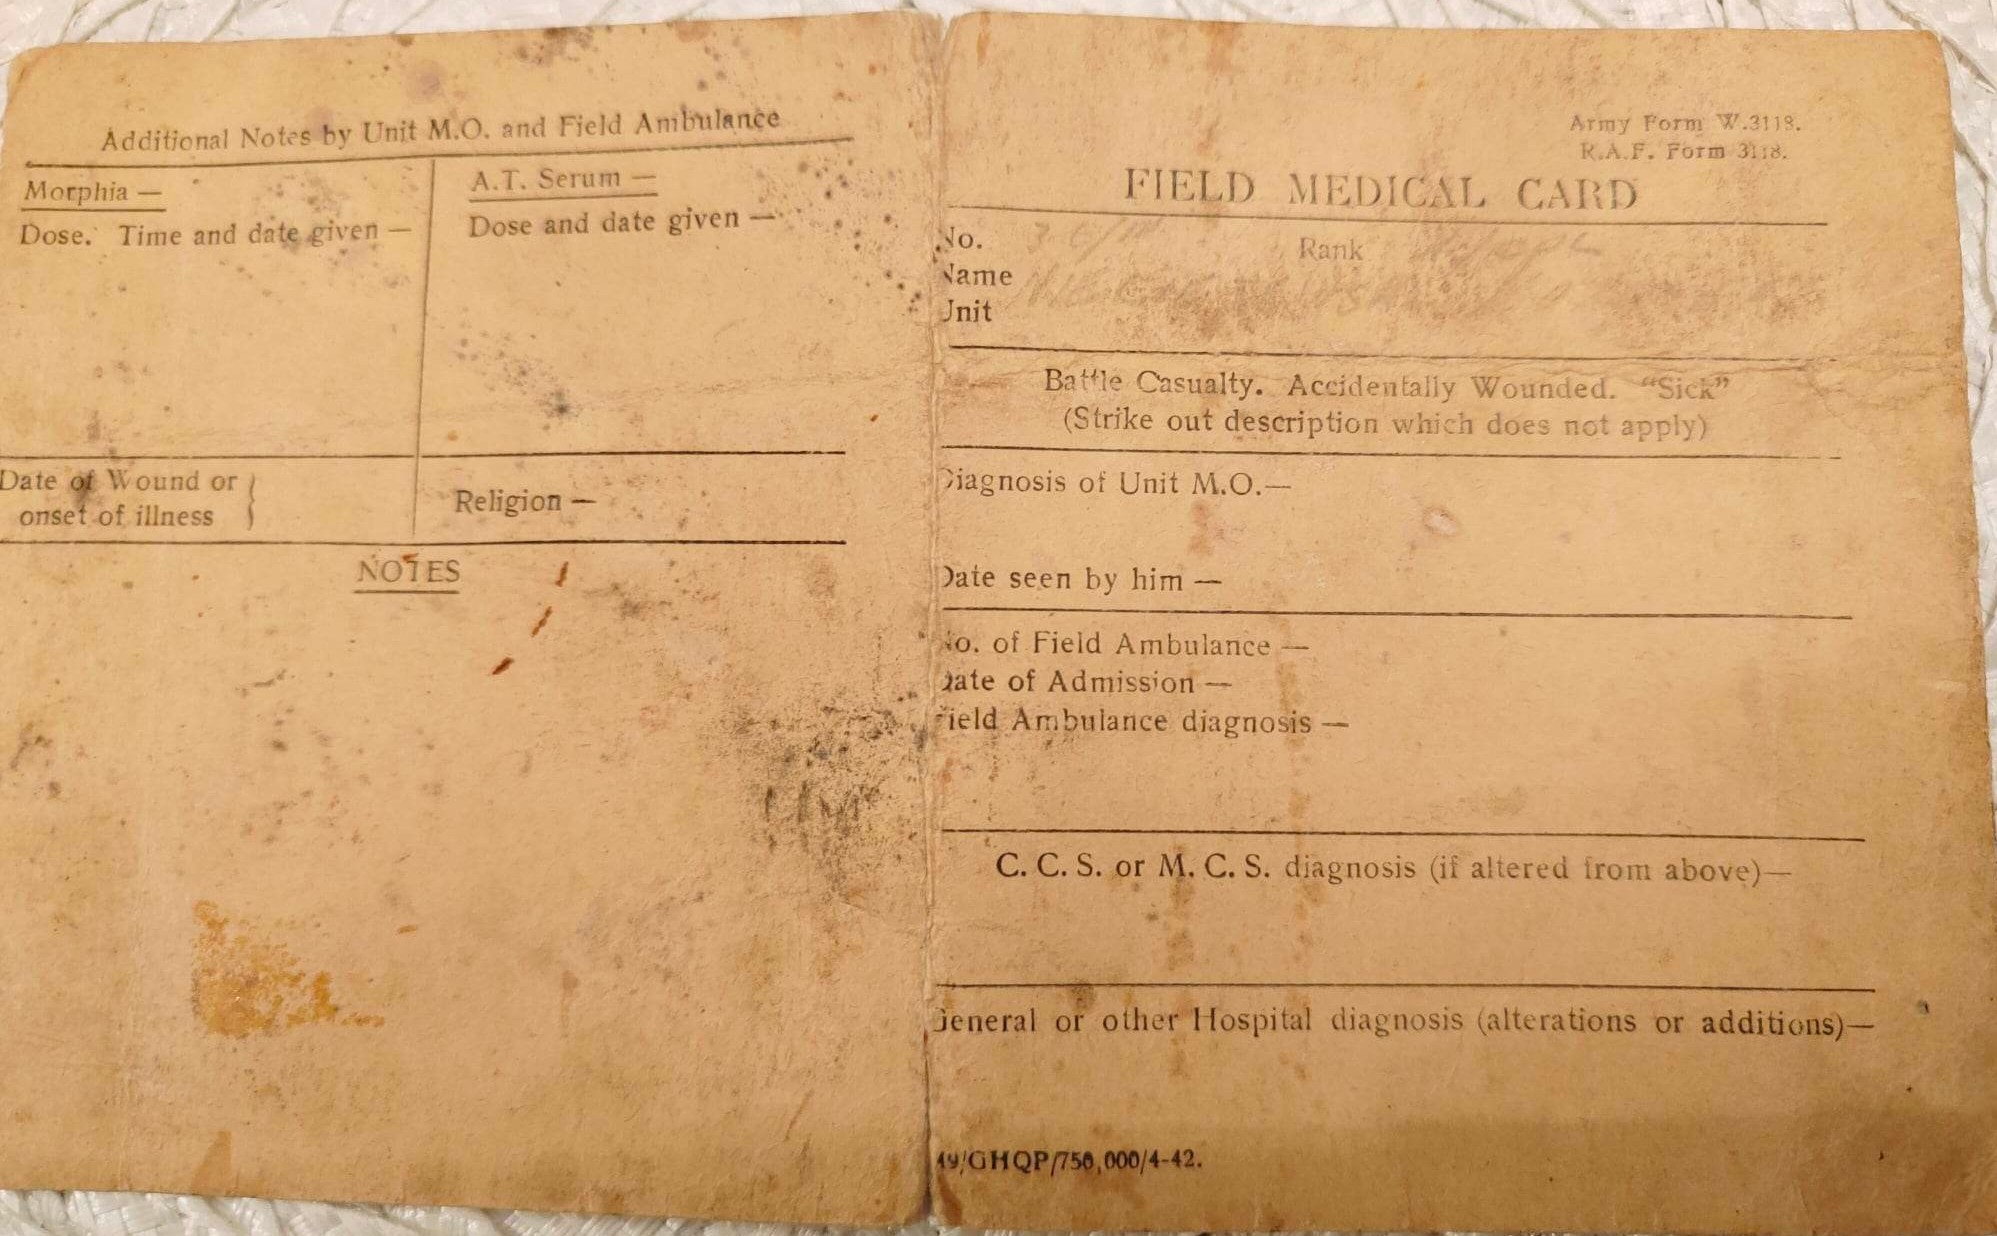 Additional Notes by Unit M.O. and Field Ambulance
Morphia —
Dose. Time and date given —
A.T. Serum —
Dose and date given —
Date of Wound or
onset of illness
Religion —
NOTES
Army Form W.3118.
R.A.F. Form 3118.
FIELD MEDICAL CARD
No.
Rank
Name
Unit
Battle Casualty. Accidentally Wounded. "Sick"
(Strike out description which does not apply)
Diagnosis of Unit M.O.—
Date seen by him —
No. of Field Ambulance —
Date of Admission —
Field Ambulance diagnosis —
C. C. S. or M. C. S. diagnosis (if altered from above)—
General or other Hospital diagnosis (alterations or additions)—
49/GHQP/750,000/4-42.